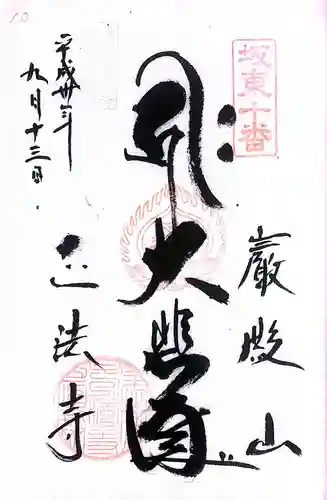 坂東十番
巌殿山
大悲殿
正法寺
平成卅年
九月十三日
10